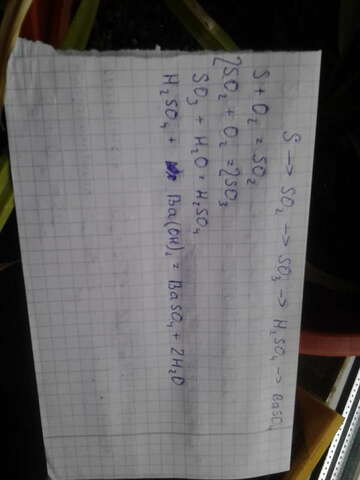 S → SO₂ → SO₃ → H₂SO₄ → BaSO₄
S + O₂ = SO₂
2SO₂ + O₂ = 2SO₃
SO₃ + H₂O = H₂SO₄
H₂SO₄ + Ba(OH)₂ = BaSO₄ + 2H₂O